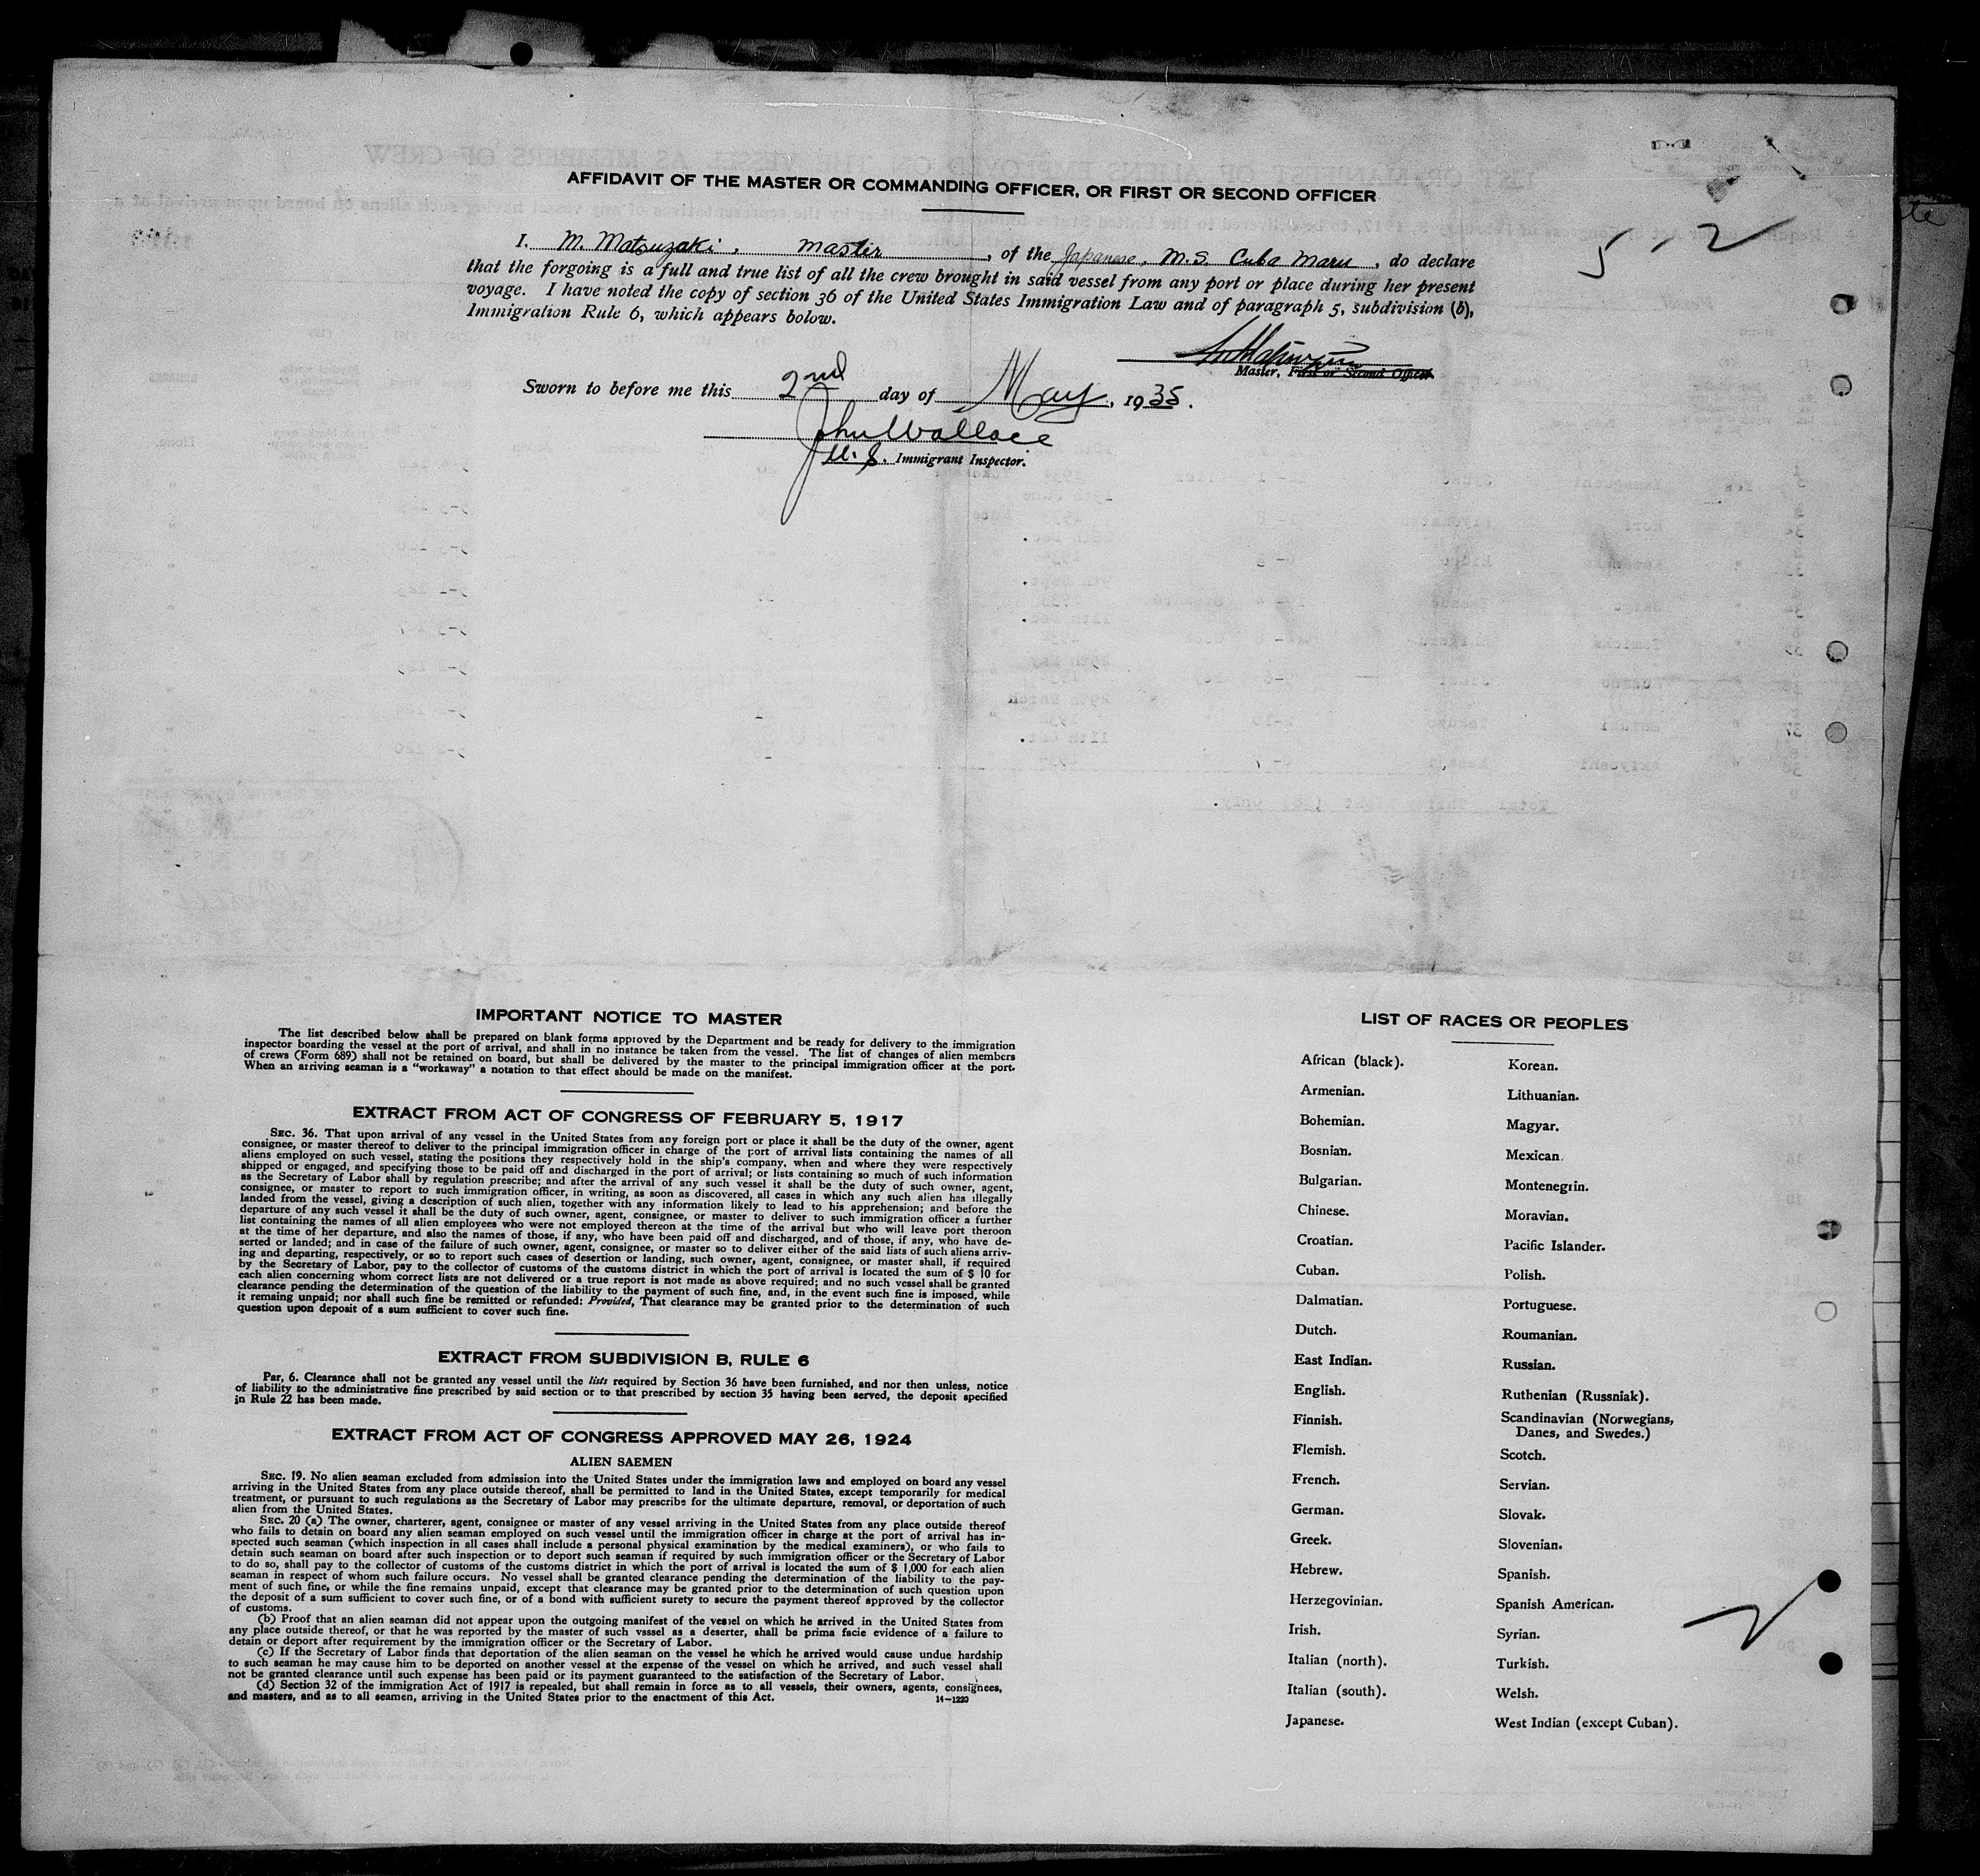 AFFIDAVIT OF THE MASTER OR COMMANDING OFFICER, OR FIRST OR SECOND OFFICER
I, M. Matsuzaki, master, of the Japanese, M.S. Cuba Maru, do declare
that the forgoing is a full and true list of all the crew brought in said vessel from any port or place during her present
voyage. I have noted the copy of section 36 of the United States Immigration Law and of paragraph 5, subdivision (b),
Immigration Rule 6, which appears bolow.
5-2
Master, First or Second Officer.
Sworn to before me this 2nd day of May, 1935.
John Wallace
U.S. Immigrant Inspector.
IMPORTANT NOTICE TO MASTER
The list described below shall be prepared on blank forms approved by the Department and be ready for delivery to the immigration
inspector boarding the vessel at the port of arrival, and shall in no instance be taken from the vessel. The list of changes of alien members
of crews (Form 689) shall not be retained on board, but shall be delivered by the master to the principal immigration officer at the port.
When an arriving seaman is a "workaway" a notation to that effect should be made on the manifest.
EXTRACT FROM ACT OF CONGRESS OF FEBRUARY 5, 1917
SEC. 36. That upon arrival of any vessel in the United States from any foreign port or place it shall be the duty of the owner, agent
consignee, or master thereof to deliver to the principal immigration officer in charge of the port of arrival lists containing the names of all
aliens employed on such vessel, stating the positions they respectively hold in the ship's company, when and where they were respectively
shipped or engaged, and specifying those to be paid off and discharged in the port of arrival; or lists containing so much of such information
as the Secretary of Labor shall by regulation prescribe; and after the arrival of any such vessel it shall be the duty of such owner, agent,
consignee, or master to report to such immigration officer, in writing, as soon as discovered, all cases in which any such alien has illegally
landed from the vessel, giving a description of such alien, together with any information likely to lead to his apprehension; and before the
departure of any such vessel it shall be the duty of such owner, agent, consignee, or master to deliver to such immigration officer a further
list containing the names of all alien employees who were not employed thereon at the time of the arrival but who will leave port theroon
at the time of her departure, and also the names of those, if any, who have been paid off and discharged, and of those, if any, who have de-
serted or landed; and in case of the failure of such owner, agent, consignee, or master so to deliver either of the said lists of such aliens arriv-
ing and departing, respectively, or so to report such cases of desertion or landing, such owner, agent, consignee, or master shall, if required
by the Secretary of Labor, pay to the collector of customs of the customs district in which the port of arrival is located the sum of $ 10 for
each alien concerning whom correct lists are not delivered or a true report is not made as above required; and no such vessel shall be granted
clearance pending the determination of the question of the liability to the payment of such fine, and, in the event such fine is imposed, while
it remaing unpaid; nor shall such fine be remitted or refunded: Provided, That clearance may be granted prior to the determination of such
question upon deposit of a sum sufficient to cover such fine.
EXTRACT FROM SUBDIVISION B, RULE 6
Par, 6. Clearance shall not be granted any vessel until the lists required by Section 36 have been furnished, and nor then unless, notice
of liability to the administrative fine prescribed by said section or to that prescribed by section 35 having been served, the deposit specified
in Rule 22 has been made.
EXTRACT FROM ACT OF CONGRESS APPROVED MAY 26, 1924
ALIEN SAEMEN
SEC. 19. No alien seaman excluded from admission into the United States under the immigration laws and employed on board any vessel
arriving in the United States from any place outside thereof, shall be permitted to land in the United States, except temporarily for medical
treatment, or pursuant to such regulations as the Secretary of Labor may prescribe for the ultimate departure, removal, or deportation of such
alien from the United States.
SEC. 20 (a) The owner, charterer, agent, consignee or master of any vessel arriving in the United States from any place outside thereof
who fails to detain on board any alien seaman employed on such vessel until the immigration officer in charge at the port of arrival has in-
spected such seaman (which inspection in all cases shall include a personal physical examination by the medical examiners), or who fails to
detain such seaman on board after such inspection or to deport such seaman if required by such immigration officer or the Secretary of Labor
to do so, shall pay to the collector of customs of the customs district in which the port of arrival is located the sum of $ 1,000 for each alien
seaman in respect of whom such failure occurs. No vessel shall be granted clearance pending the determination of the liability to the pay-
ment of such fine, or while the fine remains unpaid, except that clearance may be granted prior to the determination of such question upon
the deposit of a sum sufficient to cover such fine, or of a bond with sufficient surety to secure the payment thereof approved by the collector
of customs.
(b) Proof that an alien seaman did not appear upon the outgoing manifest of the vessel on which he arrived in the United States from
any place outside thereof, or that he was reported by the master of such vsssel as a deserter, shall be prima facie evidence of a failure to
detain or deport after requirement by the immigration officer or the Secretary of Labor.
(c) If the Secretary of Labor finds that deportation of the alien seaman on the vessel he which he arrived would cause undue hardship
to such seaman he may cause him to be deported on another vessel at the expense of the vessel on which he arrived, and such vessel shall
not be granted clearance until such expense has been paid or its payment guaranteed to the satisfaction of the Secretary of Labor.
(d) Section 32 of the immigration Act of 1917 is repealed, but shall remain in force as to all vessels, their owners, agents, consignees,
and masters, and as to all seamen, arriving in the United States prior to the enactment of this Act.
14-1220
LIST OF RACES OR PEOPLES
African (black).
Armenian.
Bohemian.
Bosnian.
Bulgarian.
Chinese.
Croatian.
Cuban.
Dalmatian.
Dutch.
East Indian.
English.
Finnish.
Flemish.
French.
German.
Greek.
Hebrew.
Herzegovinian.
Irish.
Italian (north).
Italian (south).
Japanese.
Korean.
Lithuanian.
Magyar.
Mexican.
Montenegrin.
Moravian.
Pacific Islander.
Polish.
Portuguese.
Roumanian.
Russian.
Ruthenian (Russniak).
Scandinavian (Norwegians,
Danes, and Swedes.)
Scotch.
Servian.
Slovak.
Slovenian.
Spanish.
Spanish American.
Syrian.
Turkish.
Welsh.
West Indian (except Cuban).